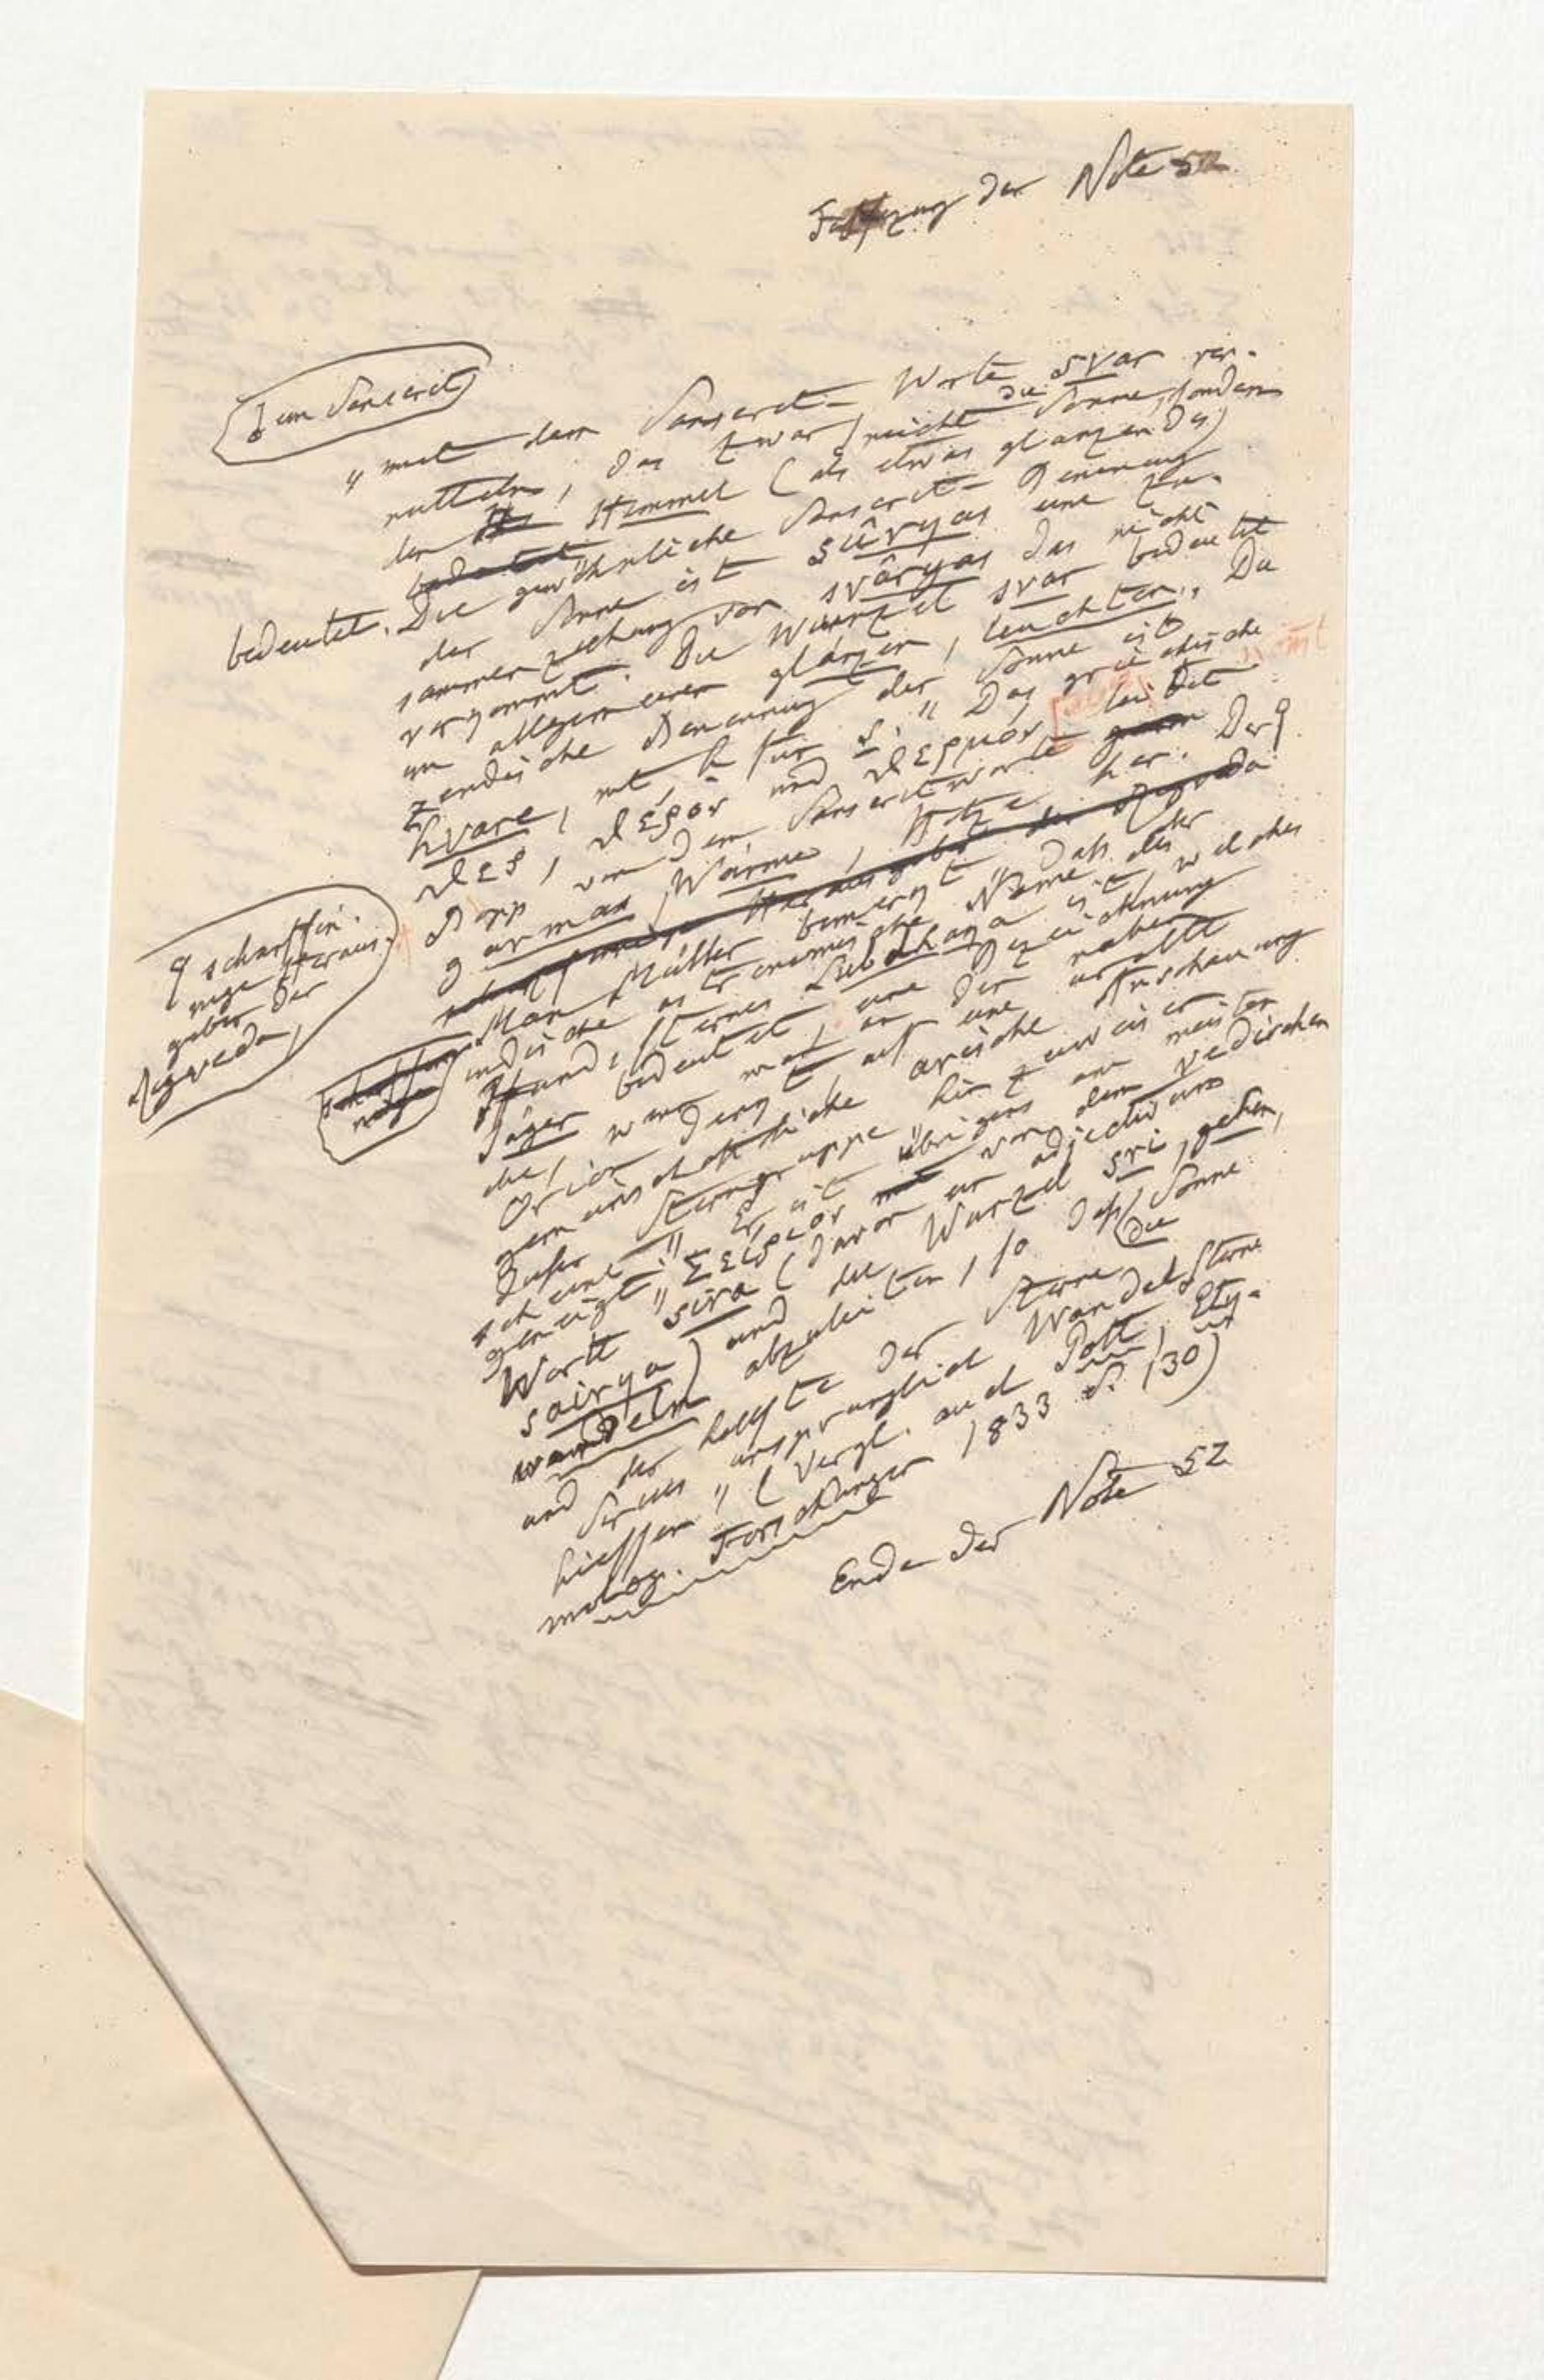 Fortsezung der Note 52
im Sanscrit
„mit dem Sanscrit-Worte svar ver-
mitteln, das zwar nicht die Sonne, sondern
den Himmel (als etwas glänzendes)
bedeutet. Die gewöhnliche Sanscrit-Benennung
der Sonne ist sûryas eine Zu-
sammenziehung von svâryas das nicht
vorkommt. Die Wurzel svar bedeutet
im allgemeinen glänzen, leuchten. Die
zendische Benennung der Sonne ist
hvare, mit h für s." Das griechische
θερ, θέρος und θερμός leitet
Bopp von dem Sanscritworte
garmas, Wärme, Hitze her. Der
scharfsin-
nige Heraus-
geber der
Rigveda,
Max Müller bemerkt „daß der
indische astronomische Name des
Hundssternes Lubdhaka ist, welches
Jäger bedeutet, eine Bezeichnung
die, wenn man an den nahen
Orion denkt, auf eine uralte
gemeinschaftliche arische Anschauung
dieser Sterngruppe hinzuweisen
scheint." Er ist übrigens am meisten
geneigt „Σείριος von dem vedischen
Worte sira (davon ein adjectivum
sairya) und die Wurzel sri, gehen,
wandeln abzuleiten, so daß die Sonne
und der hellste der Sterne
Sirius ursprünglich Wandelsterne
hießen" (Vergl. auch Pott, Ety-
molog. Forschungen 1833 S. 130)
Ende der Note 52